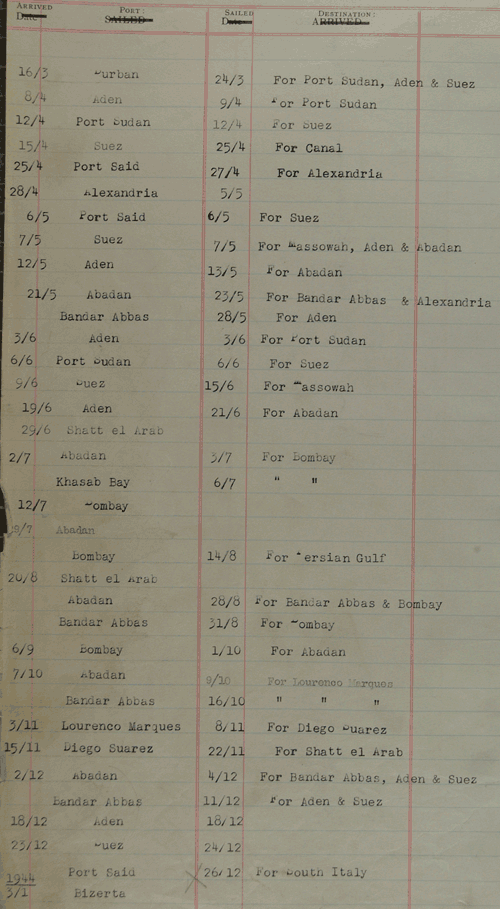 ARRIVED PORT: SAILED DESTINATION:
Date SAILED Date ARRIVED
16/3 Durban 24/3 For Port Sudan, Aden & Suez
8/4 Aden 9/4 For Port Sudan
12/4 Port Sudan 12/4 For Suez
15/4 Suez 25/4 For Canal
25/4 Port Said 27/4 For Alexandria
28/4 Alexandria 5/5
6/5 Port Said 6/5 For Suez
7/5 Suez 7/5 For Massowah, Aden & Abadan
12/5 Aden 13/5 For Abadan
21/5 Abadan 23/5 For Bandar Abbas & Alexandria
Bandar Abbas 28/5 For Aden
3/6 Aden 3/6 For Port Sudan
6/6 Port Sudan 6/6 For Suez
9/6 Suez 15/6 For Massowah
19/6 Aden 21/6 For Abadan
29/6 Shatt el Arab
2/7 Abadan 3/7 For Bombay
Khasab Bay 6/7 " "
12/7 Bombay
Abadan
Bombay 14/8 For Persian Gulf
20/8 Shatt el Arab
Abadan 28/8 For Bandar Abbas & Bombay
Bandar Abbas 31/8 For Bombay
6/9 Bombay 1/10 For Abadan
7/10 Abadan 9/10 For Lourenco Marques
Bandar Abbas 16/10 " " "
3/11 Lourenco Marques 8/11 For Diego Suarez
15/11 Diego Suarez 22/11 For Shatt el Arab
2/12 Abadan 4/12 For Bandar Abbas, Aden & Suez
Bandar Abbas 11/12 For Aden & Suez
18/12 Aden 18/12
23/12 Suez 24/12
Port Said 26/12 For South Italy
1944
3/1 Bizerta